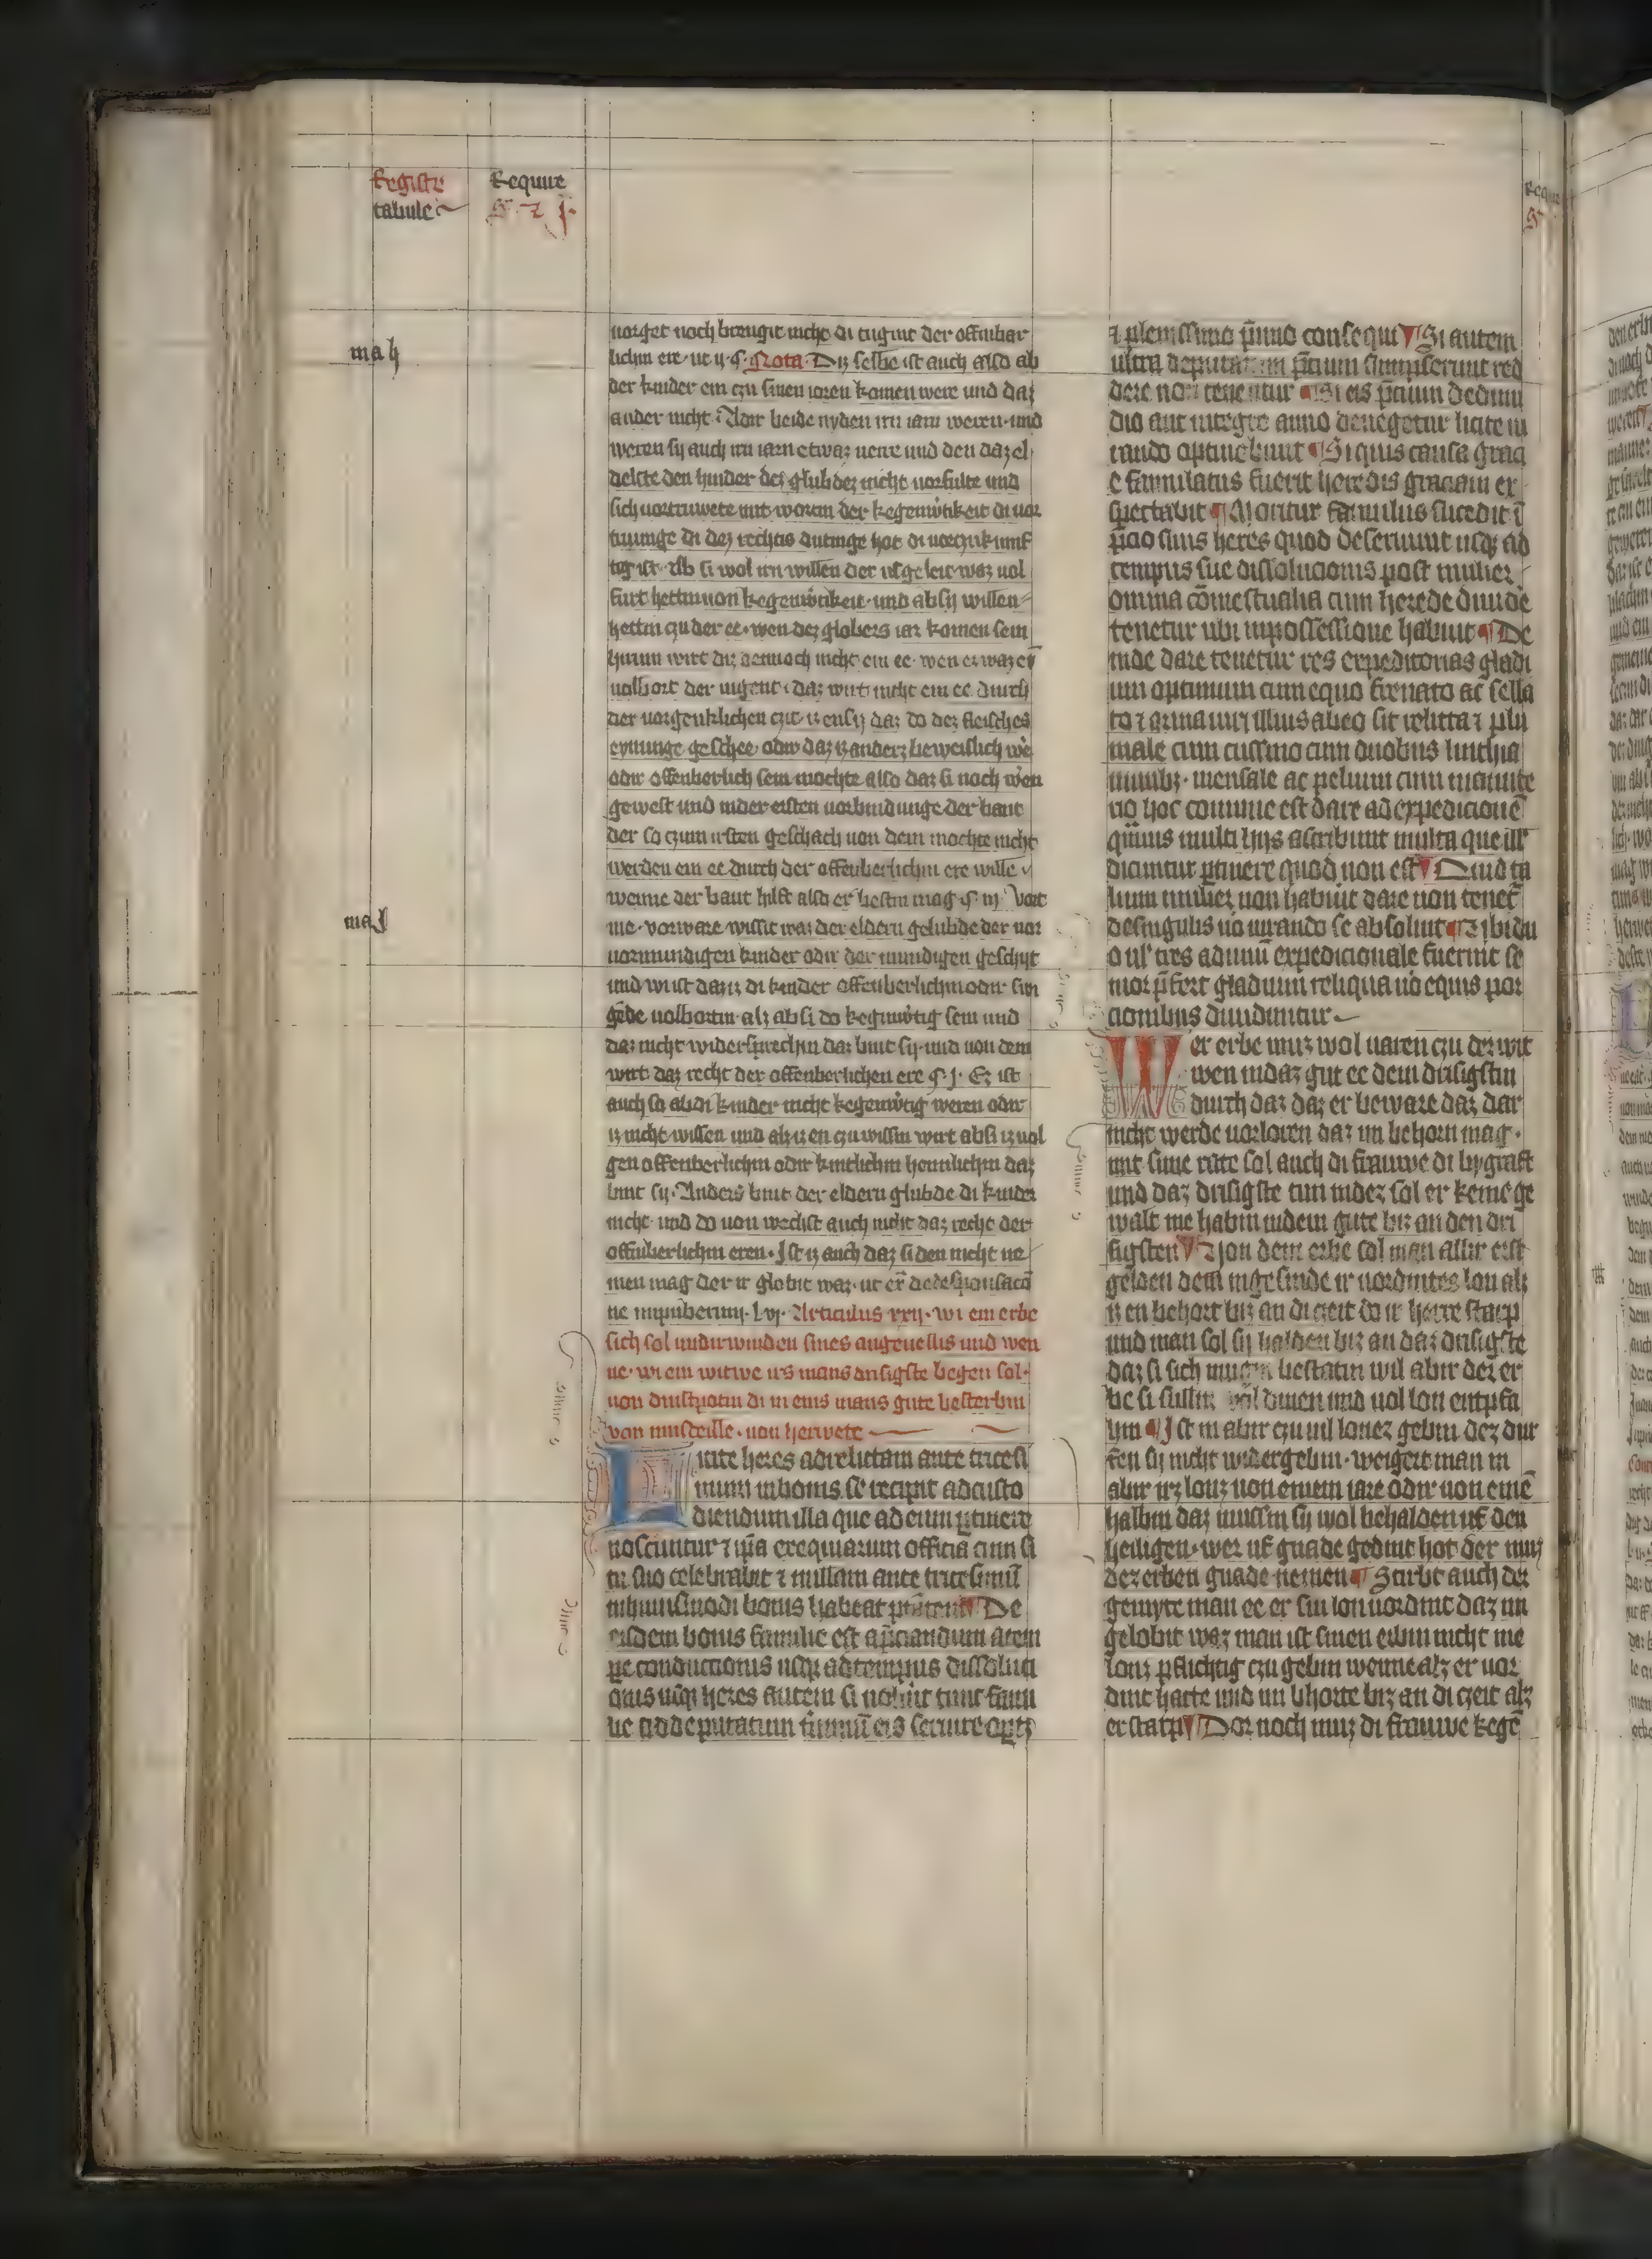 Registr
tabule
Require
mah
maj
vorget noch brengit nicht di tugint der offinbar
lichin ere ut ij. §. Nota. Diz selbe ist auch also ab
der kinder ein czu sinen iaren komen were und daz
ander nicht. Adir beide nyden irn iarn weren. und
weren sy auch irn iarn etwaz nerre und den daz el
delste den hinder des glubdez nicht vorfulte und
sich vortruwete mit worten der kegenwtikeit di vor
truunge di dez rechtis dutinge hot di vorczukunf
tig ist. Ab si wol irn willen der ufgeleit waz vol
furt hettin von kegenwtikeit. und ab sy willen
hettin czu der ee. wen dez globers iar komen sein
hirinn wirt diz dennoch nicht ein ee. wen er waz er
volbort der iugent. daz wirt nicht ein ee durch
der vorgenklichen czit. iz en sy daz do dez fleisches
eynunge geschee. odir daz iz anderz beweislich we
odir offenberlich sein mochte also daz si noch wen
gewest und inder ersten vorbindunge der bant
der so czum irsten geschach von dem mochte nicht
werden ein ee durch der offenberlichin ere wille
wenne der baut hilft also er bestin mag. §. iij Vort
me. vorware wissit waz der eldern gelubde der vor
vormundigen kinder odir der mundigen geschyt
und wirt daz iz di kinder offenberlichin odir swi
gede volbortin. alz ab si do keginwtig sein und
daz nicht widersprechin daz bint sy. und von dem
wirt daz recht der offenberlichen ere §. j. Ez ist
auch so ab di kinder nicht kegenwtig weren odir
iz nicht wissen und alz iz en czu wissin wirt ab si iz vol
gen offenberlichin odir kintlichin heimlichin daz
bint sy. Anders bint der eldern glubde di kinder
nicht und do von wechst auch nicht daz recht der
offinberlichin eren. Ist iz auch daz si den nicht ne
men mag der ir globit waz. ut ex de desponsacio
ne inpuberum. lvj. Articulus xxij. wi ein erbe
sich sol undirwinden sines angeuellis und wen
ne. wi ein witwe irs mans drisigste begen sol.
von dinstpotin di in eins mans gute besterbin
von musteille. von herwete
Licite heres ad relictam ante tricesi
mum in bonis se recipit ad custo
diendum illa que ad eum pertinere
noscuntur et ipsa exequiarum officia cum si
tu suo celebrabit et nullam ante tricesimu
in huiusmodi bonis habeat potestatem De
eisdem bonis familie est apciandum a tem
pe conductionis usque ad tempus dissoluti
onis usque heres autem si noluit tunc fami
lie ad deputatum terminum eis servire optz
et plenissimo pmio consequi Si autem
ultra deputatum pcium sumpserunt red
dere non tenentur Si eis pcium dedimi
dio aut integre anno denegetur licite iu
rando optinebunt Si quis causa grac
e famulatus fuerit heredis graciam ex
spectabit Moritur famulus sucedit i
pcio suus heres quod deseruiuit usque ad
tempus sue dissolucionis post mulier
omnia comestualia cum herede diuide
tenetur ubi inpossessione habuit De
inde dare tenetur res expeditorias gladi
um optimum cum equo frenato ac sella
to et armaturi illius ab eo sit relitta et plu
male cum cussino cum duobus linthia
minibz. mensale ac pelium cum manute
io hoc commue est dare ad expedicione
quuis multi hijs ascribunt multa que ill
dicuntur ptinere quod non est Quid ta
lium mulier non habuit dare non tenet
de singulis uo iurando se absoluit Et ibi du
o ul tres ad unu expedicionale fuerint se
nior pfert gladium reliqua uo equis por
cionibus diuiduntur
Wer erbe muz wol varen czu dez wit
wen indaz gut ee dem drisigstin
durch daz daz er beware daz dar
nicht werde vorloren daz im behorn mag.
mit sime rate sol auch di frauwe di bygraft
und daz drisigste tun indez sol er keine ge
walt me habin indem gute biz an den dri
sigsten Von dem erbe sol man allir erst
gelden dem ingesinde ir vordintes lon alz
iz en behort biz an di czeit do ir herre starp
und man sol sy halden biz an daz drisigste
daz si sich mugen bestatin wil abir dez er
be si sullin vol dinen und vol lon entpfa
hin Ist in abir czu vil lonez gebin dez dur
fen sy nicht widergebin. weigert man in
abir irz lonz von einem iare odir von eime
halbin daz mussin sy wol behalden uf den
heiligen. wer uf gnade gedint hot der muz
dez erben gnade nemen Stirbt auch der
gemyte man ee er sin lon vordint daz im
gelobit waz man ist sinen erbin nicht me
lonz pflichtig czu gebin wenne alz er vor
dint hatte und im bhorte biz an di czeit alz
er starp Dor noch muz di frauwe kege